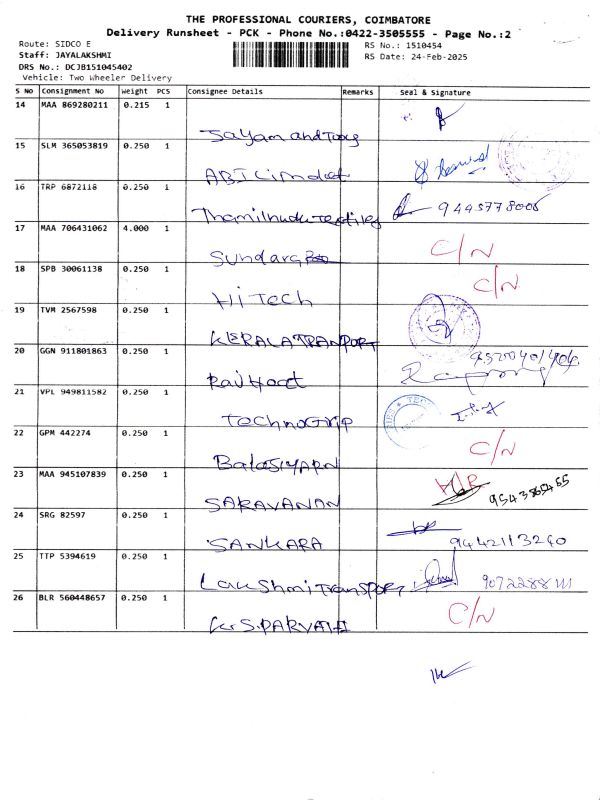 THE PROFESSIONAL COURIERS, COIMBATORE
Delivery Runsheet - PCK - Phone No.:0422-3505555 - Page No.:2
Route: SIDCO E RS No.: 1510454
Staff: JAYALAKSHMI RS Date: 24-Feb-2025
DRS No.: DCJB151045402
Vehicle: Two Wheeler Delivery
S No Consignment No Weight PCS Consignee Details Remarks Seal & Signature
14 MAA 869280211 0.215 1
Jayam and Toos
15 SLM 365053819 0.250 1
16 TRP 6872118 0.250 1
Thamilnudu textiles 9445778006
17 MAA 706431062 4.000 1 C/N
Sundara
18 SPB 30061138 0.250 1 C/N
HiTech
19 TVM 2567598 0.250 1
KERALA TRANPORT
20 GGN 911801863 0.250 1
21 VPL 949811582 0.250 1
TechnoGrip
22 GPM 442274 0.250 1 C/N
23 MAA 945107839 0.250 1
SARAVANAN
24 SRG 82597 0.250 1
SANKARA 9442113240
25 TTP 5394619 0.250 1
Lakshmi Transport
26 BLR 560448657 0.250 1 C/N
K.S.PARVATHI